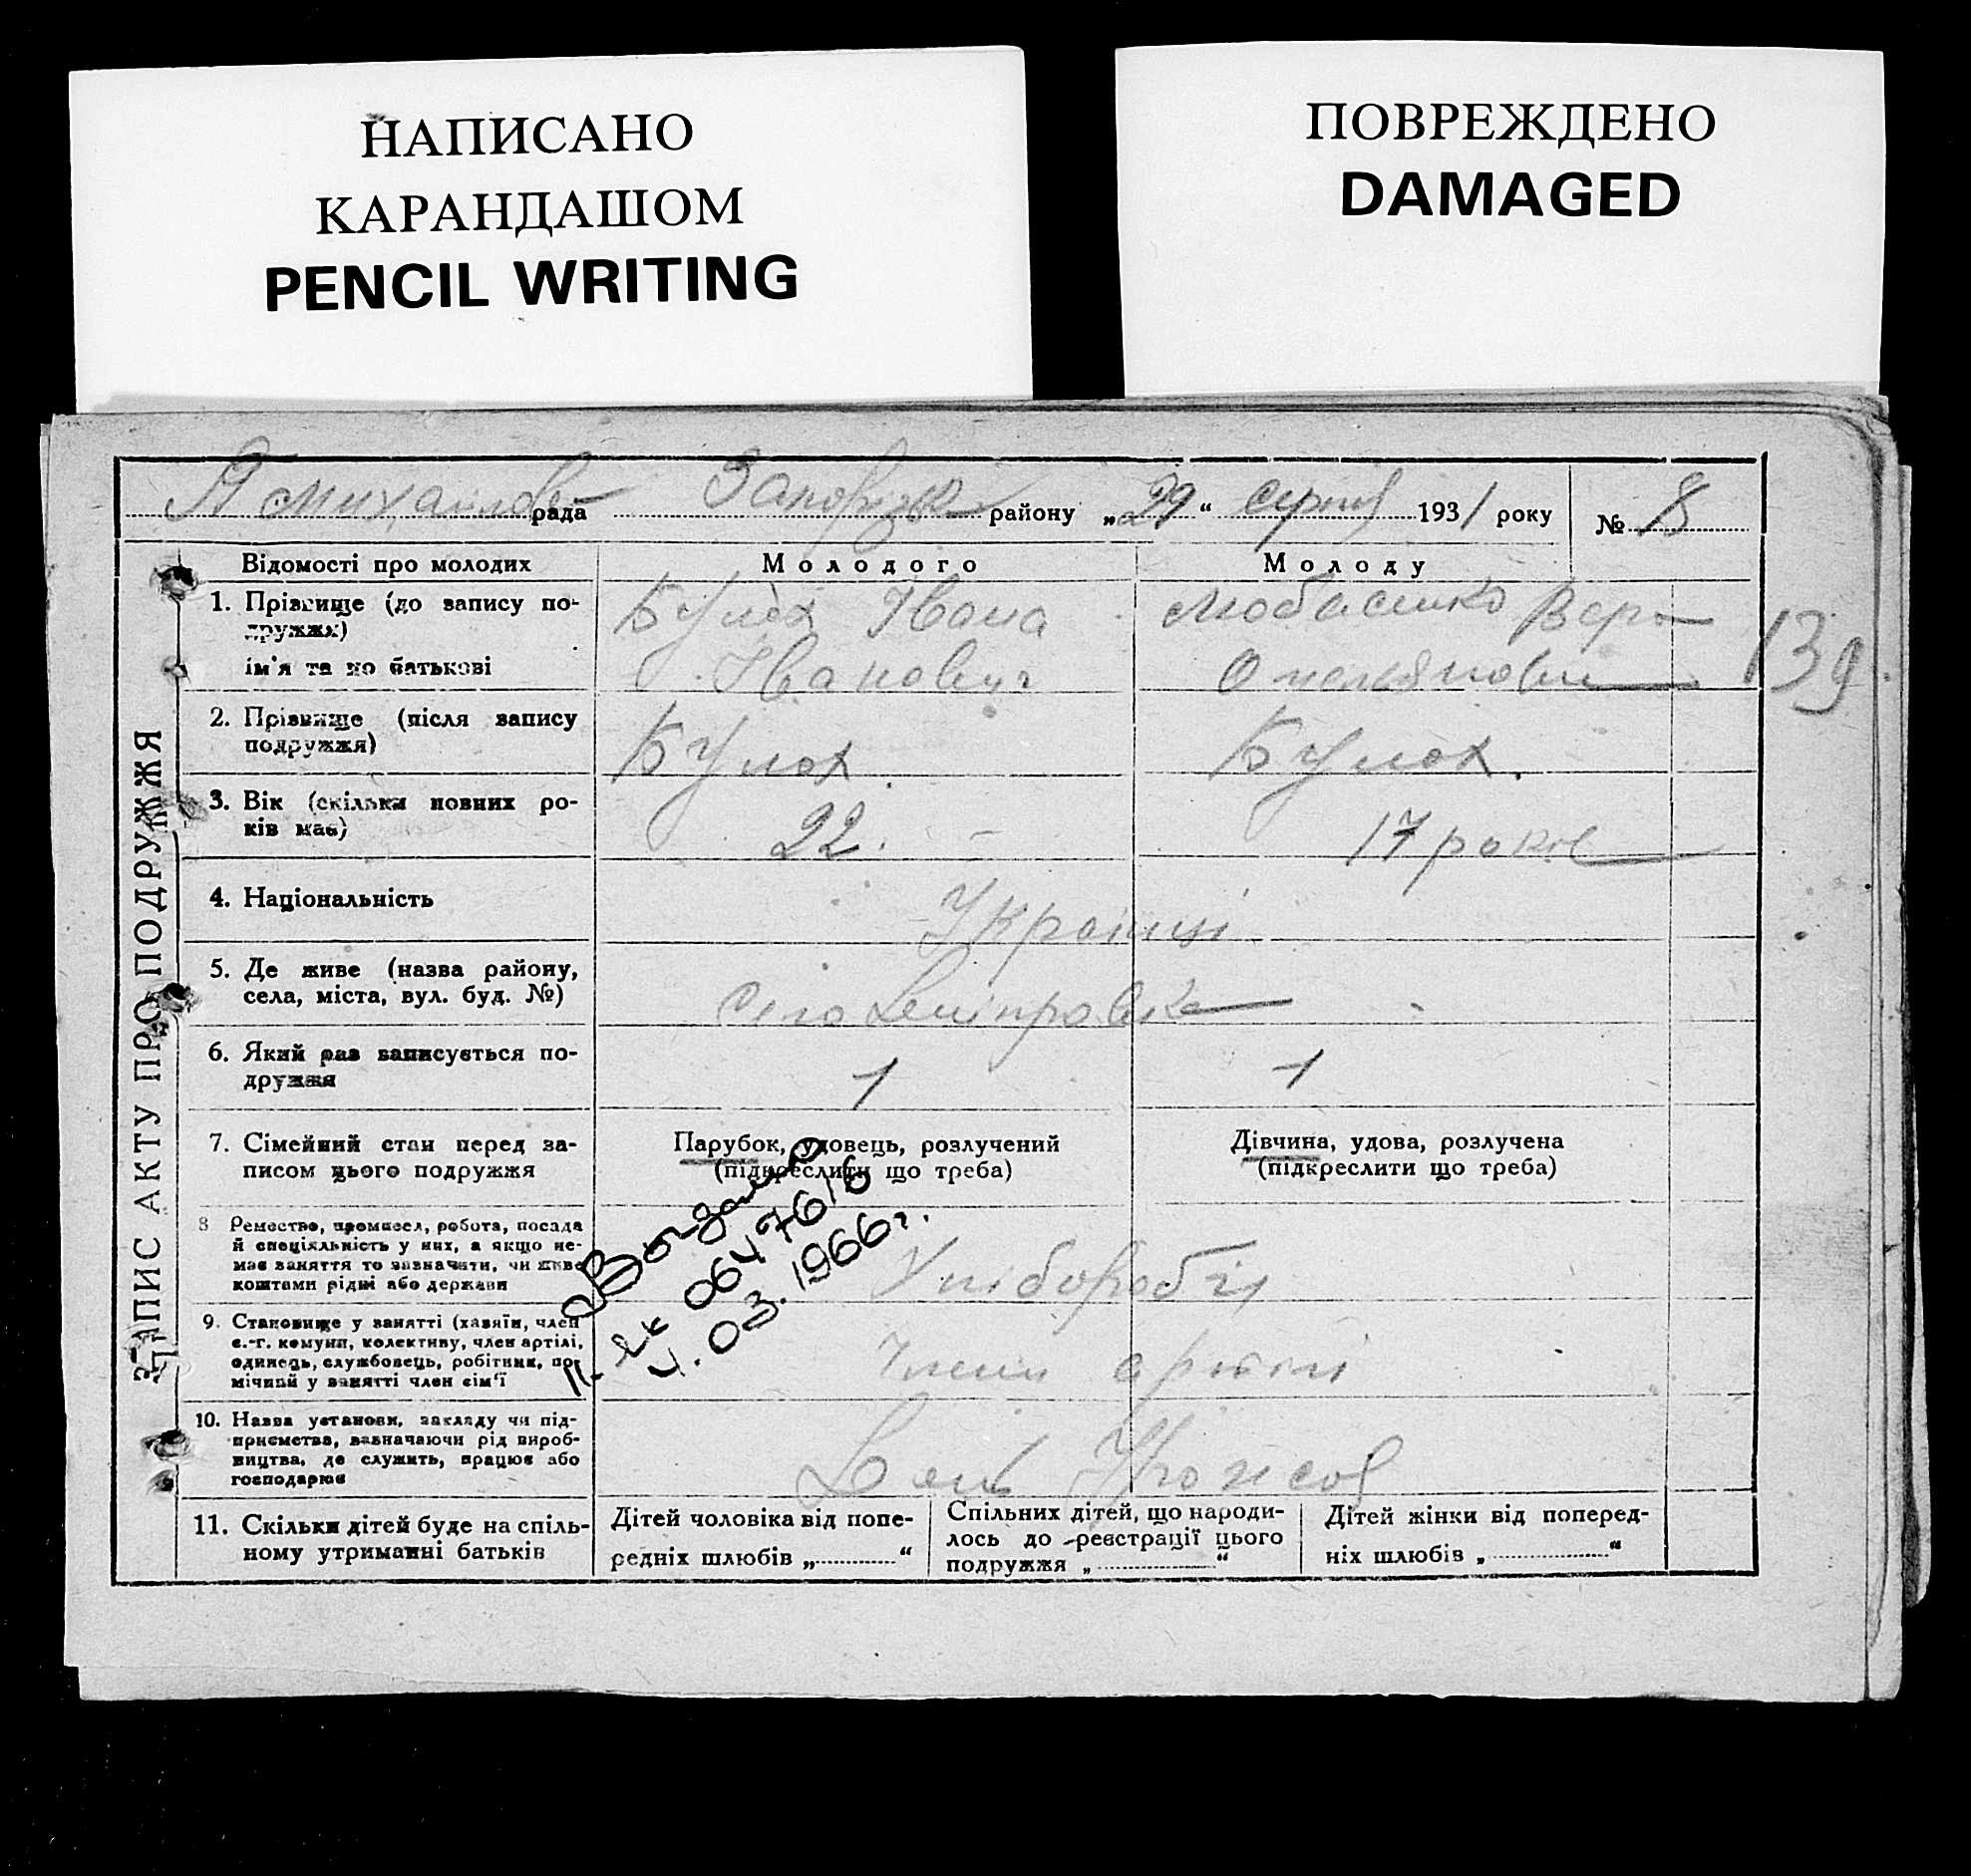 НАПИСАНО
КАРАНДАШОМ
PENCIL WRITING
ПОВРЕЖДЕНО
DAMAGED
рада Запорізьк району „29“ серпня 1931 року № 8
ЗАПИС АКТУ ПРО ПОДРУЖЖЯ
Відомості про молодих
Молодого
Молоду
1. Прізвище (до запису по-
дружжя)
ім'я та по батькові
Булах Івана
Іванович
Вера
Омельяновна
139
2. Прізвище (після запису
подружжя)
Булах.
Булах.
3. Вік (скільки повних ро-
ків має)
22.
17 років
4. Національність
Українці
5. Де живе (назва району,
села, міста, вул. буд. №)
Село
6. Який раз записується по-
дружжя
1
1
7. Сімейний стан перед за-
писом цього подружжя
Парубок, удовець, розлучений
(підкреслити що треба)
Дівчина, удова, розлучена
(підкреслити що треба)
8 Ремество, промисел, робота, посада
й спеціяльність у них, а якщо не-
має заняття то зазначити, чи живе
коштами рідні або держави
Хліборобін
9. Становище у занятті (хазяїн, член
с.-г. комуни, колективу, член артілі,
одинець, службовець, робітник, по-
мічний у занятті член сім'ї
Члени артілі
10. Назва установи, закладу чи під-
приємства, зазначаючи рід вироб-
ництва, де служить, працює або
господарює
11. Скільки дітей буде на спіль-
ному утриманні батьків
Дітей чоловіка від попе-
редніх шлюбів „ “
Спільних дітей, що народи-
лось до реєстрації цього
подружжя „ “
Дітей жінки від поперед-
ніх шлюбів „ “
0647616
4.03.1966г.